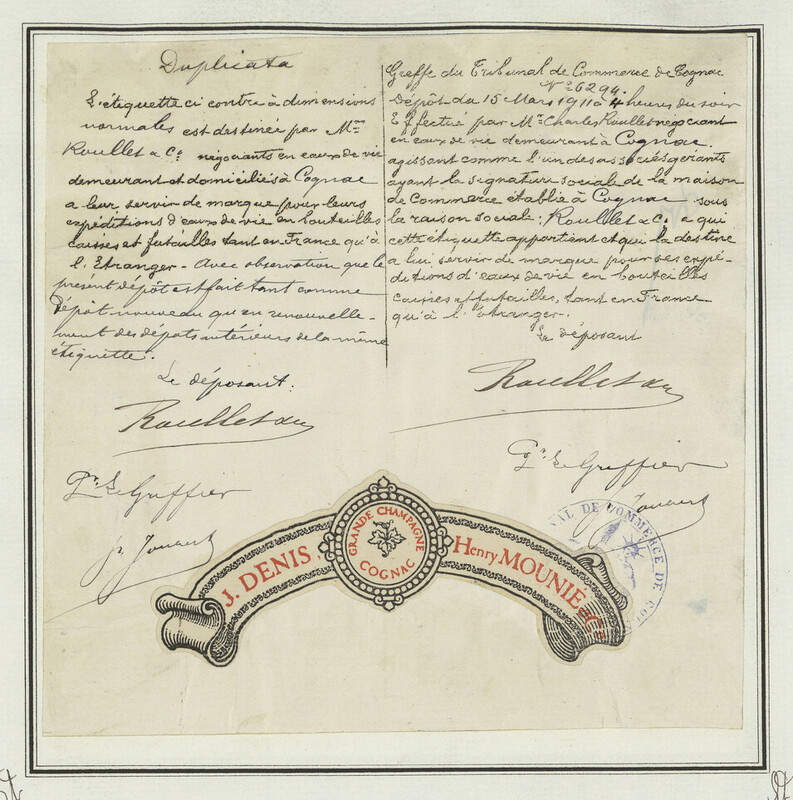 Duplicata
L'étiquette ci contre à dimensions
normales est destinée par Mrs
Roullet & Co négociants en eaux de vie
demeurant et domiciliés à Cognac
a leur servir de marque pour leurs
expéditions d'eaux de vie en bouteilles
caisses et futailles tant en France qu'à
l'Etranger - Avec observation que le
présent dépôt est fait tant comme
dépôt nouveau qu'en renouvelle-
ment des dépôts antérieurs de la même
étiquette.
Le déposant:
Roullet &Co
Pr Le Greffier
Greffe du Tribunal de Commerce de Cognac
No 6294.
Dépôt du 15 Mars 1911 à 4 heures du soir
Effectué par Mr Charles Roullet négociant
en eaux de vie demeurant à Cognac.
agissant comme l'un des associés gérants
ayant la signature sociale de la maison
de Commerce établie à Cognac sous
la raison sociale: Roullet & Co. a qui
cette étiquette appartient et qui la destine
a lui servir de marque pour ses expé-
ditions d'eaux de vie en bouteilles
caisses et futailles, tant en France
qu'à l'Etranger.
Le déposant
Roullet &Co
Pr Le Greffier
J. DENIS,
GRANDE CHAMPAGNE
COGNAC
Henry MOUNIÉ & Co.
NAL DE COMMERCE DE CO